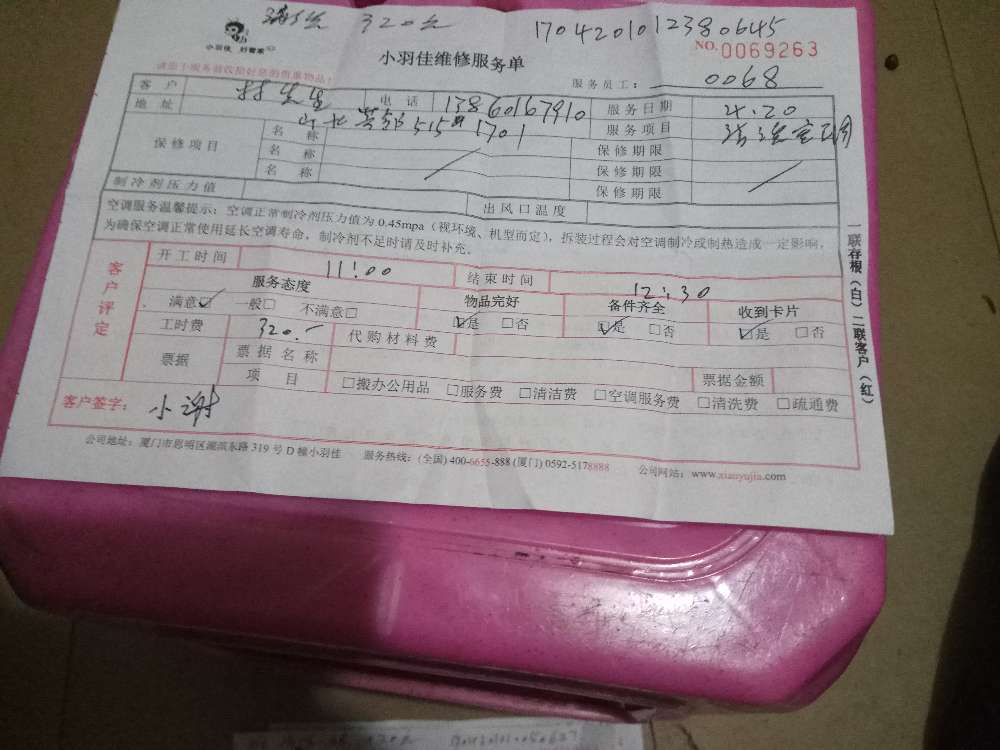 320元 170420101238 0645
小羽佳 好管家
小羽佳维修服务单
NO.0069263
请您于服务前收拾好您的贵重物品!
服务员工: 0068
客户 林先生 电话 13860167910 服务日期 4.20
地址 515 1701 服务项目 清洗空调
保修项目 名称 保修期限
名称 保修期限
名称 保修期限
制冷剂压力值 出风口温度
空调服务温馨提示:空调正常制冷剂压力值为0.45mpa(视环境、机型而定),拆装过程会对空调制冷或制热造成一定影响,
为确保空调正常使用延长空调寿命,制冷剂不足时请及时补充。
客户评定
开工时间 11:00 结束时间 12:30
服务态度 物品完好 备件齐全 收到卡片
满意☑ 一般□ 不满意□ ☑是 □否 ☑是 □否 ☑是 □否
工时费 320.- 代购材料费
票据 票据名称 票据金额
项目 □搬办公用品 □服务费 □清洁费 □空调服务费 □清洗费 □疏通费
客户签字: 小谢
公司地址:厦门市思明区湖滨东路319号D幢小羽佳 服务热线:(全国)400-6655-888(厦门)0592-5178888 公司网站:www.xiaoyujia.com
一联存根(白)二联客户(红)